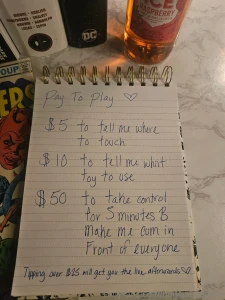 ICE
RASPBERRY
DC
GROUP
ERS
Pay To Play ♡
$5 to tell me where
to touch
$10 to tell me what
toy to use
$50 to take control
for 5 minutes &
Make me cum in
Front of everyone
Tipping over $25 will get you the link afterwards